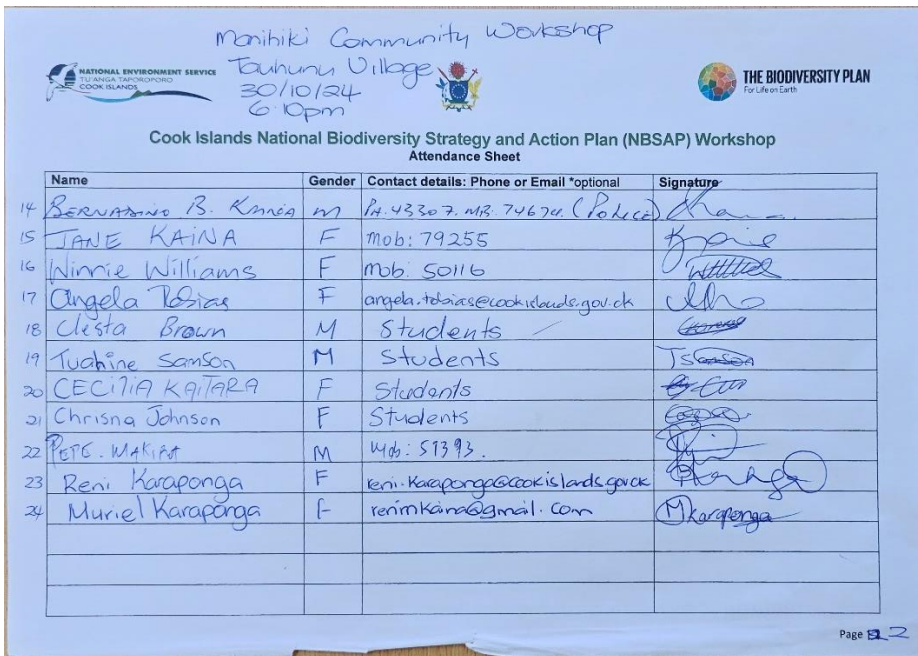 Manihiki Community Workshop
Tauhunu Village
30/10/24
6:10pm
NATIONAL ENVIRONMENT SERVICE
TU'ANGA TAPOROPORO
COOK ISLANDS
THE BIODIVERSITY PLAN
For Life on Earth
Cook Islands National Biodiversity Strategy and Action Plan (NBSAP) Workshop
Attendance Sheet
Name Gender Contact details: Phone or Email *optional Signature
14 BERNADINO B. M PH. 43307. MB. 74674. (Police)
15 JANE KAINA F Mob: 79255
16 Winnie Williams F Mob: 50116
17 Angela Tobias F angela.tobias@cookislands.gov.ck
18 Clesta Brown M Students
19 Tuahine Samson M Students
20 CECILIA KAITARA F Students
21 Chrisna Johnson F Students
22 PETE. M Mob: 51393.
23 Reni Karaponga F reni.karaponga@cookislands.gov.ck
24 Muriel Karaponga F renimkaina@gmail.com MKaraponga
Page 2